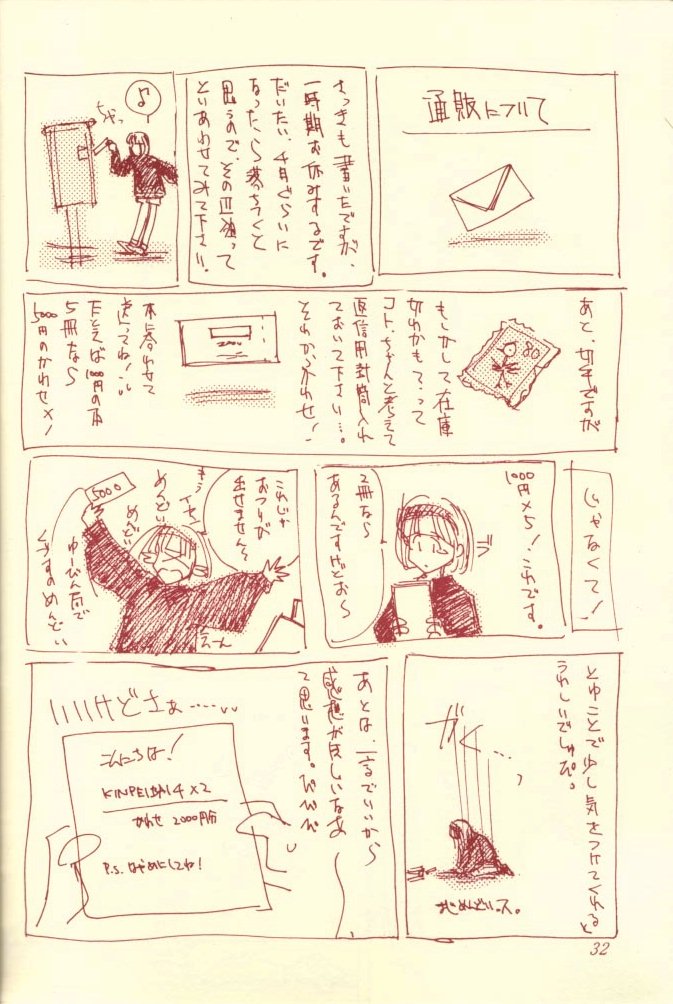 通販について
さっきも書いたですが、
一時期お休みするです。
だいたい、4月ぐらいに
なったら落ちつくと
思うので、その辺狙って
といあわせてみて下さい。
♪
あと、切手ですが
80
もしかして在庫
コト、ちゃんと考えて
返信用封筒入れ
ておいて下さい…。
それから、かわせ!
2000
本に合わせて
送ってね!
たとえば1000円の本
5冊なら
5000円のかわせ×!
じゃなくて!
1000円×5!これです。
2冊なら
あるんですけどお〜
これじゃ
おつりが
出せません〜
5000
めんどい
めんどい
ゆーびん局で
くずすのめんどい
えーん
とゆことで少し気をつけてくれると
うれしいでしゅぴ。
がく…
あとは、一言でいいから
感想がほしいなあ
て思います。ぴぴぴ
いいけどさぁ……
こんにちは!
かわせ 2000円分
P.S. はやめにしてね!
32